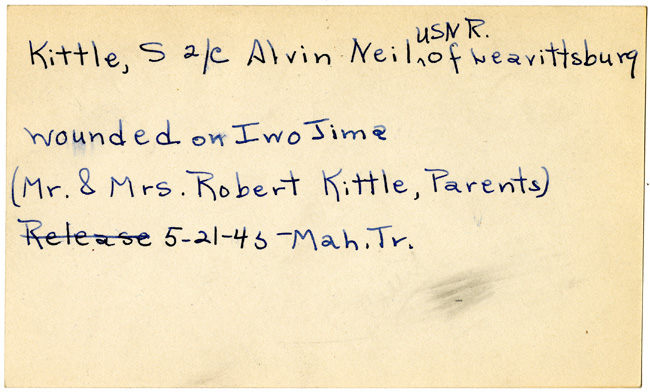 Kittle, S 2/c Alvin Neil, USNR. of Leavittsburg
wounded on Iwo Jima
(Mr. & Mrs. Robert Kittle, Parents)
Release 5-21-45 - Mah. Tr.